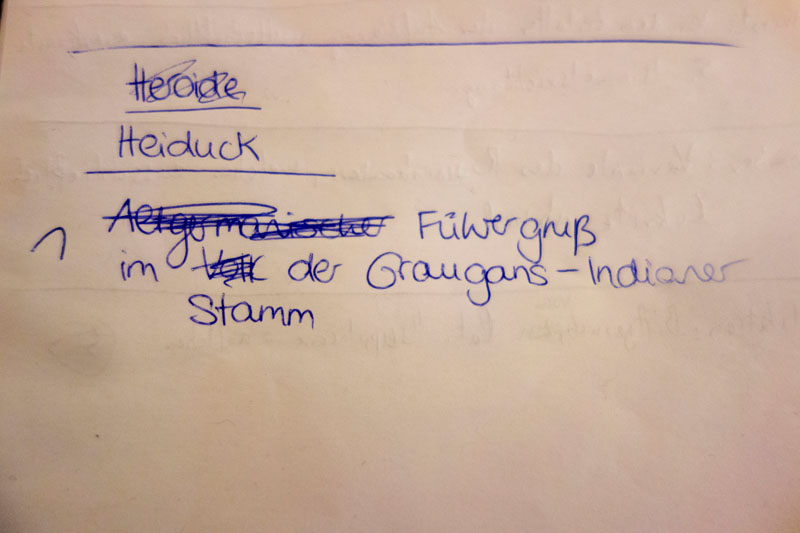 Heroide
Heiduck
Altgermanischer Führergruß
im Volk der Graugans-Indianer
Stamm